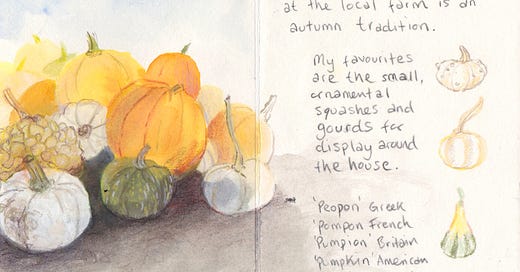 at the local farm is an
autumn tradition.
My favourites
are the small,
ornamental
squashes and
gourds for
display around
the house.
'Peopon' Greek
'pompon French
'Pumpion' Britain
'Pumpkin' American